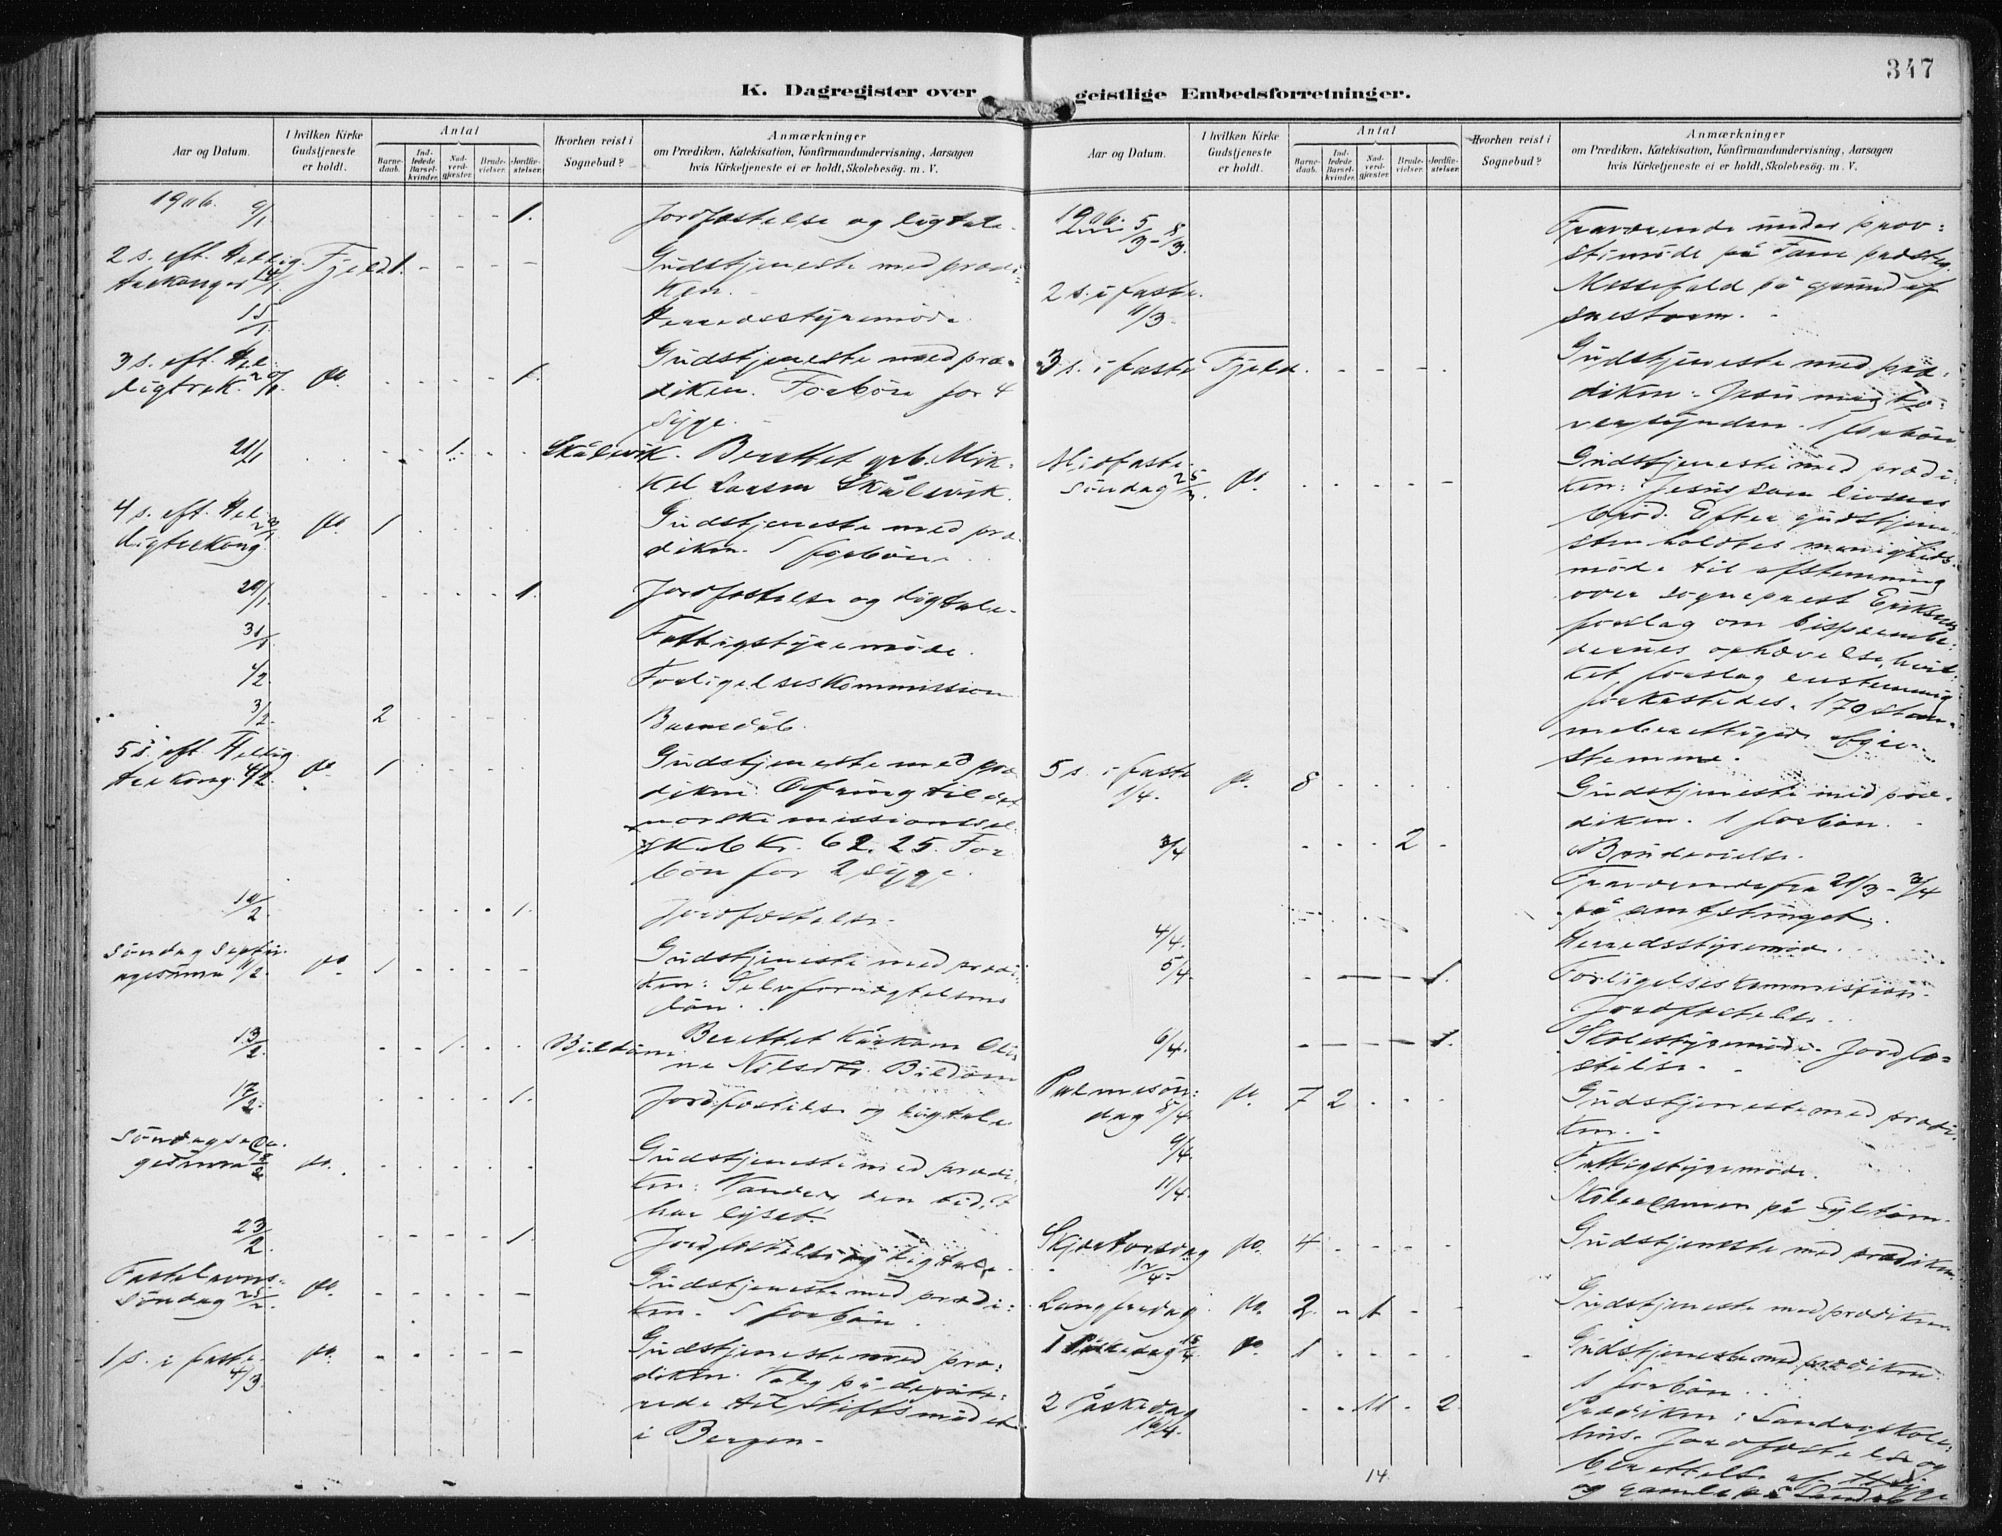 347
K. Dagregister over geistlige Embedsforretninger.
Aar og Datum.
I hvilken Kirke Gudstjeneste er holdt.
Antal
Barnedaab.
Indledede Barselkvinder.
Nadverdgjæster.
Brudevielser.
Jordfæstelser.
Hvorhen reist i Sognebud?
Anmærkninger
om Prædiken, Katekisation, Konfirmandundervisning, Aarsagen
hvis Kirketjeneste ei er holdt, Skolebesøg. m. V.
1906. 9/1 1. Jordfæstelse og ligtale.
2 s. eft. Hellig- Fjeld 1. Gudstjeneste med prædi-
trekonger 14/1 ken.
15/1 Herredsstyremøde.
3 s. eft. Hel- Gudstjeneste med præ-
ligtrek. do. 1. diken. Forbøn for 4
syge.
1. Skålevik. Berettet Mik-
kel Larsen Skålevik.
4 s. eft. Hel- do. 1 Gudstjeneste med præ-
ligtrekong. diken. forbøn.
1. Jordfæstelse og ligtale.
31/1 Fattigstyremøde.
Forligelseskommission
3/2 2 Barnedåb.
5 s. eft. Hellig- Gudstjeneste med præ-
trekong. 4/2 do. 1 diken. Ofring til det
norske missionssel-
skab kr. 62.25. For-
bøn for 2 syge.
10/2 1. Jordfæstelse.
Søndag Septu- Gudstjeneste med prædi-
agesima 11/2 do. 1 ken: Selvfornægtelsens
løn.
13/2 1. Bildøen Berettet
Nilsdtr. Bildøen
17/2 1. Jordfæstelse og ligtale
Søndag Gudstjeneste med prædi-
18/2 do. ken: Vandrer den tid I
har lyset.
23/2 1. Jordfæstelse og ligtale.
Fastelavns- do. Gudstjeneste med prædi-
søndag 25/2 ken. forbøn.
1 s. i faste do. Gudstjeneste med præ-
4/3 diken. Valg på depute-
rede til Stiftsmødet
i Bergen.
Aar og Datum.
I hvilken Kirke Gudstjeneste er holdt.
Antal
Barnedaab.
Indledede Barselkvinder.
Nadverdgjæster.
Brudevielser.
Jordfæstelser.
Hvorhen reist i Sognebud?
Anmærkninger
om Prædiken, Katekisation, Konfirmandundervisning, Aarsagen
hvis Kirketjeneste ei er holdt, Skolebesøg. m. V.
1906. 5/3 - 8/3. Fraværende under prov-
stimøde på Fane
2 s. i faste. Messefald på grund af
11/3. snestorm.
3 s. i faste Fjeld. Gudstjeneste med præ-
diken:
1 forbøn
Midfaste- Gudstjeneste med prædi-
søndag 25/3. do. ken: Jesus som livsens
brød. Efter gudstjene-
sten holdtes menigheds-
møde til afstemning
over sogneprest Eriksens
forslag om bispeembe-
dernes ophævelse, hvil-
ket forslag enstemmig
forkastedes. 170 stem-
meberettigede
stemme.
5 s. i faste do. 8 Gudstjeneste med præ-
1/4. diken. 1 forbøn.
3/4 2 Brudevielse.
Fraværende fra
på amtstinget.
4/4. Herredsstyremøde.
5/4 1. Forligelseskommission.
Jordfæstelse.
6/4. 1. Skolestyremøde. Jordfæ-
stelse.
Palmesøn- do. 7 2 Gudstjeneste med prædi-
dag 8/4. ken.
9/4. Fattigstyremøde.
11/4. Skoleexamen på
Skjærtorsdag do. 4 Gudstjeneste med prædiken.
12/4.
Langfredag do. 2 1 Gudstjeneste med prædiken
1 Påskedag 15/4 do. 1 Gudstjeneste med prædiken.
1 forbøn.
2 Påskedag 11 2. Prædiken: Landrøskole-
16/4. hus. Jordfæstelse og
14 berettelse af syge
og gamle på